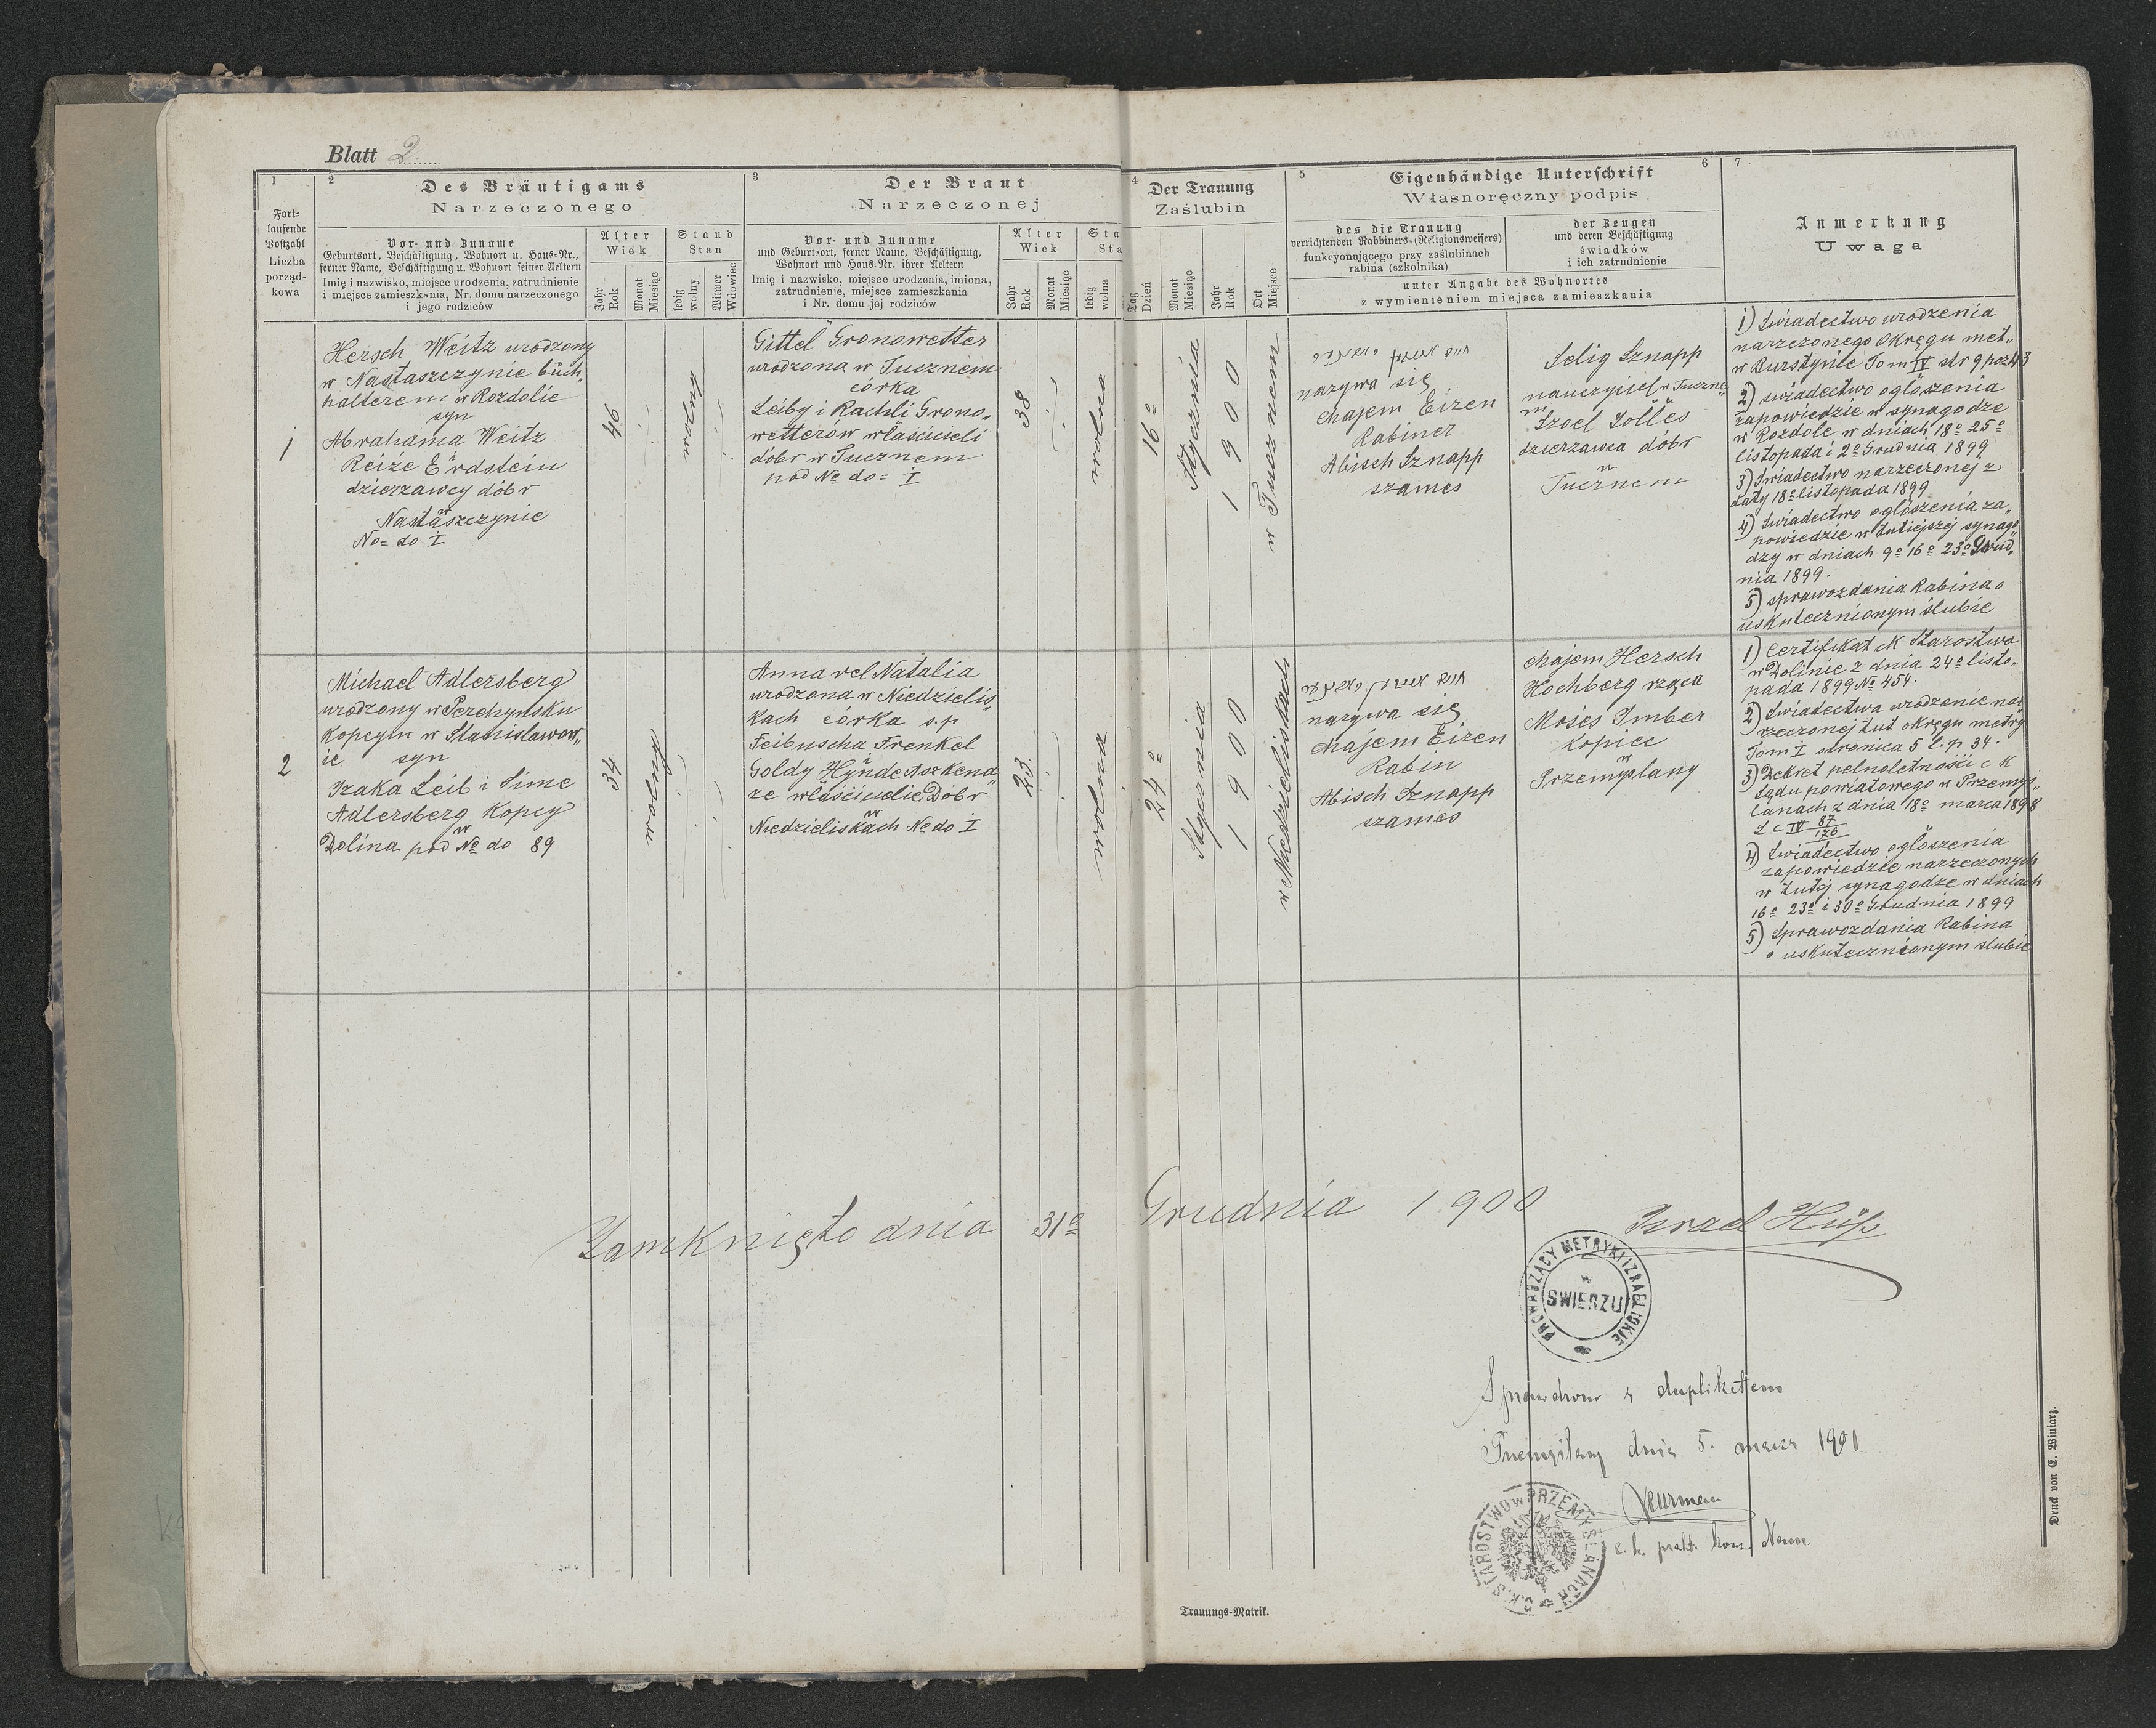 Blatt 2
1
Fort-
laufende
Postzahl
Liczba
porząd-
kowa
2
Des Bräutigams
Narzeczonego
Vor- und Zuname
Geburtsort, Beschäftigung, Wohnort u. Haus-Nr.,
ferner Name, Beschäftigung u. Wohnort seiner Aeltern
Imię i nazwisko, miejsce urodzenia, zatrudnienie
i miejsce zamieszkania, Nr. domu narzeczonego
i jego rodziców
Alter
Wiek
Jahr
Rok
Monat
Miesiąc
Stand
Stan
ledig
wolny
Witwer
Wdowiec
3
Der Braut
Narzeczonej
Vor- und Zuname
und Geburtsort, ferner Name, Beschäftigung,
Wohnort und Haus-Nr. ihrer Aeltern
Imię i nazwisko, miejsce urodzenia, imiona,
zatrudnienie, miejsce zamieszkania
i Nr. domu jej rodziców
Alter
Wiek
Jahr
Rok
Monat
Miesiąc
Sta
Sta
ledig
wolna
4
Der Trauung
Zaślubin
Tag
Dzień
Monat
Miesiąc
Jahr
Rok
Ort
Miejsce
5
6
Eigenhändige Unterschrift
Własnoręczny podpis
des die Trauung
verrichtenden Rabbiners (Religionsweisers)
funkcyonującego przy zaślubinach
rabina (szkolnika)
der Zeugen
und deren Beschäftigung
świadków
i ich zatrudnienie
unter Angabe des Wohnortes
z wymienieniem miejsca zamieszkania
7
Anmerkung
Uwaga
1
Hersch Weitz urodzony
w Nastaszczynie buch„
halterem w Rozdolie
syn
Abrahama Weitz
Reize Erdstein
dzierzawcy dóbr
w
Nastaszczynie
No= do I
34
wolny
Gittel Gronowetter
urodzona w Tucznem
córka
Leiby i Rachli Grono„
wetterów właścicieli
dóbr w Tucznem
pod No do= I
38
wolna
16º
Stycznia
1900
w Tucznem
nazywa się
Chajem Eizen
Rabiner
Abisch Sznapp
szames
Selig Sznapp
nauczyciel w Tucznem
Izoel Solles
dzierzawca dóbr
w
Tucznem
1) Świadectwo urodzenia
narzeczonego Okręgu met„
w Bursztynie Tom IV str 9 poz 43
2) świadectwo ogłoszenia
zapowiedzie w synagodze
w Rozdole w dniach 18º 25º
listopada i 2º Grudnia 1899
3) Świadectwo narzeczonej z
daty 18º listopada 1899
4) Świadectwo ogłoszenia za„
powiedzie w tutiejszej synago„
dzy w dniach 9º 16º 23º Grud„
nia 1899.
5) sprawozdania Rabina o
uskutecznionym ślubie
2
Michael Adlersberg
urodzony w Perehynsku
kopcym w Stanisławow„
ie syn
Izaka Leib i Sime
Adlersberg kopcy
w
Dolina pod No do 89
34
wolny
Anna vel Natalia
urodzona w Niedzielis„
kach córka s.p
Feibuscha Frenkel
Goldy Hynde Aszkena„
ze właścicielie Dóbr
w
Niedzieliskach No do I
23
wolna
24º
Stycznia
1900
w Niedzieliskach
nazywa się
Chajem Eizen
Rabin
Abisch Sznapp
szames
Chajem Hersch
Hochberg rządca
Mojżes Imber
kopiec
w
Przemyślany
1) Certifikat ck Starostwa
w Dolinie z dnia 24º listo„
pada 1899 No 454.
2) Świadectwa urodzenie na„
rzeczonej tut okręgu metry
Tom I stronica 5 L.p 34.
3) Dekret pelnoletności c k
Sądu powiatowego w Przemyś„
lanach z dnia 18º marca 1898
L c IV 87/126
4) Świadectwo ogłoszenia
zapowiedzie narzeczonych
w tutej synagodze w dniach
16º 23º i 30º Grudnia 1899
5) Sprawozdania Rabina
o uskutecznionym slubie
Zamknięto dnia 31º Grudnia 1900
Israel Hüß
PROWADZĄCY METRYKI IZRAELICKIE
SWIERZU
Sprawdzono z duplikatem
Przemyślany dnia 5. marca 1901
C.K. STAROSTWO W PRZEMYŚLANACH
c. k. prakt. konc. Namn.
Trauungs-Matrik.
Druck von E. Winiarz.